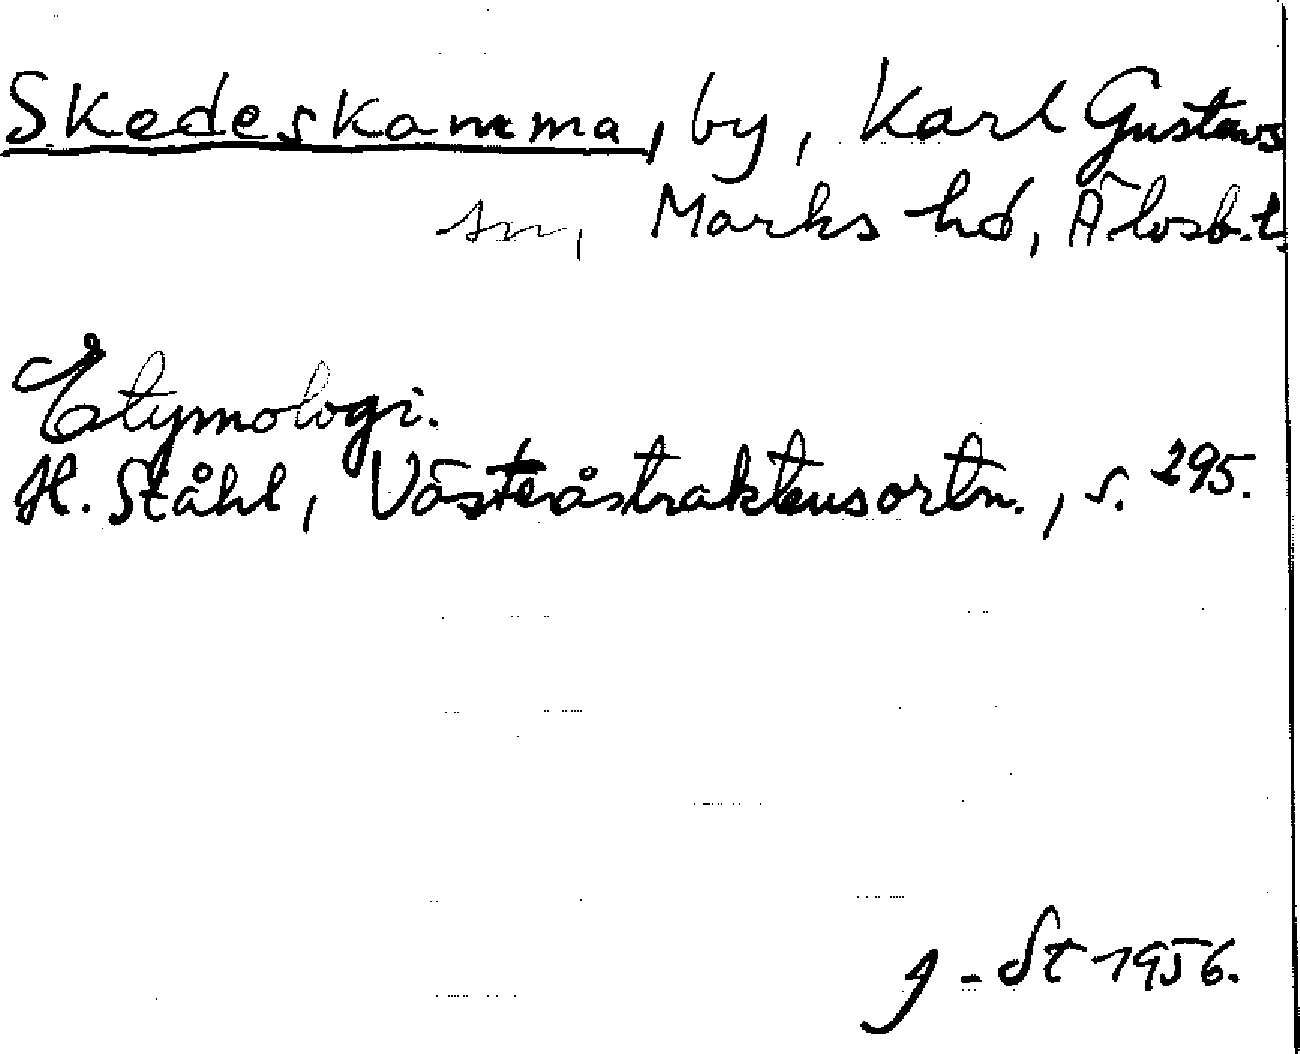 Skedeskamma, by, Karl Gustavs
sn, Marks hd, Älvsb. l.
Etymologi.
H. Ståhl, Västeråstraktens ortn., s. 295.
J-St 1956.